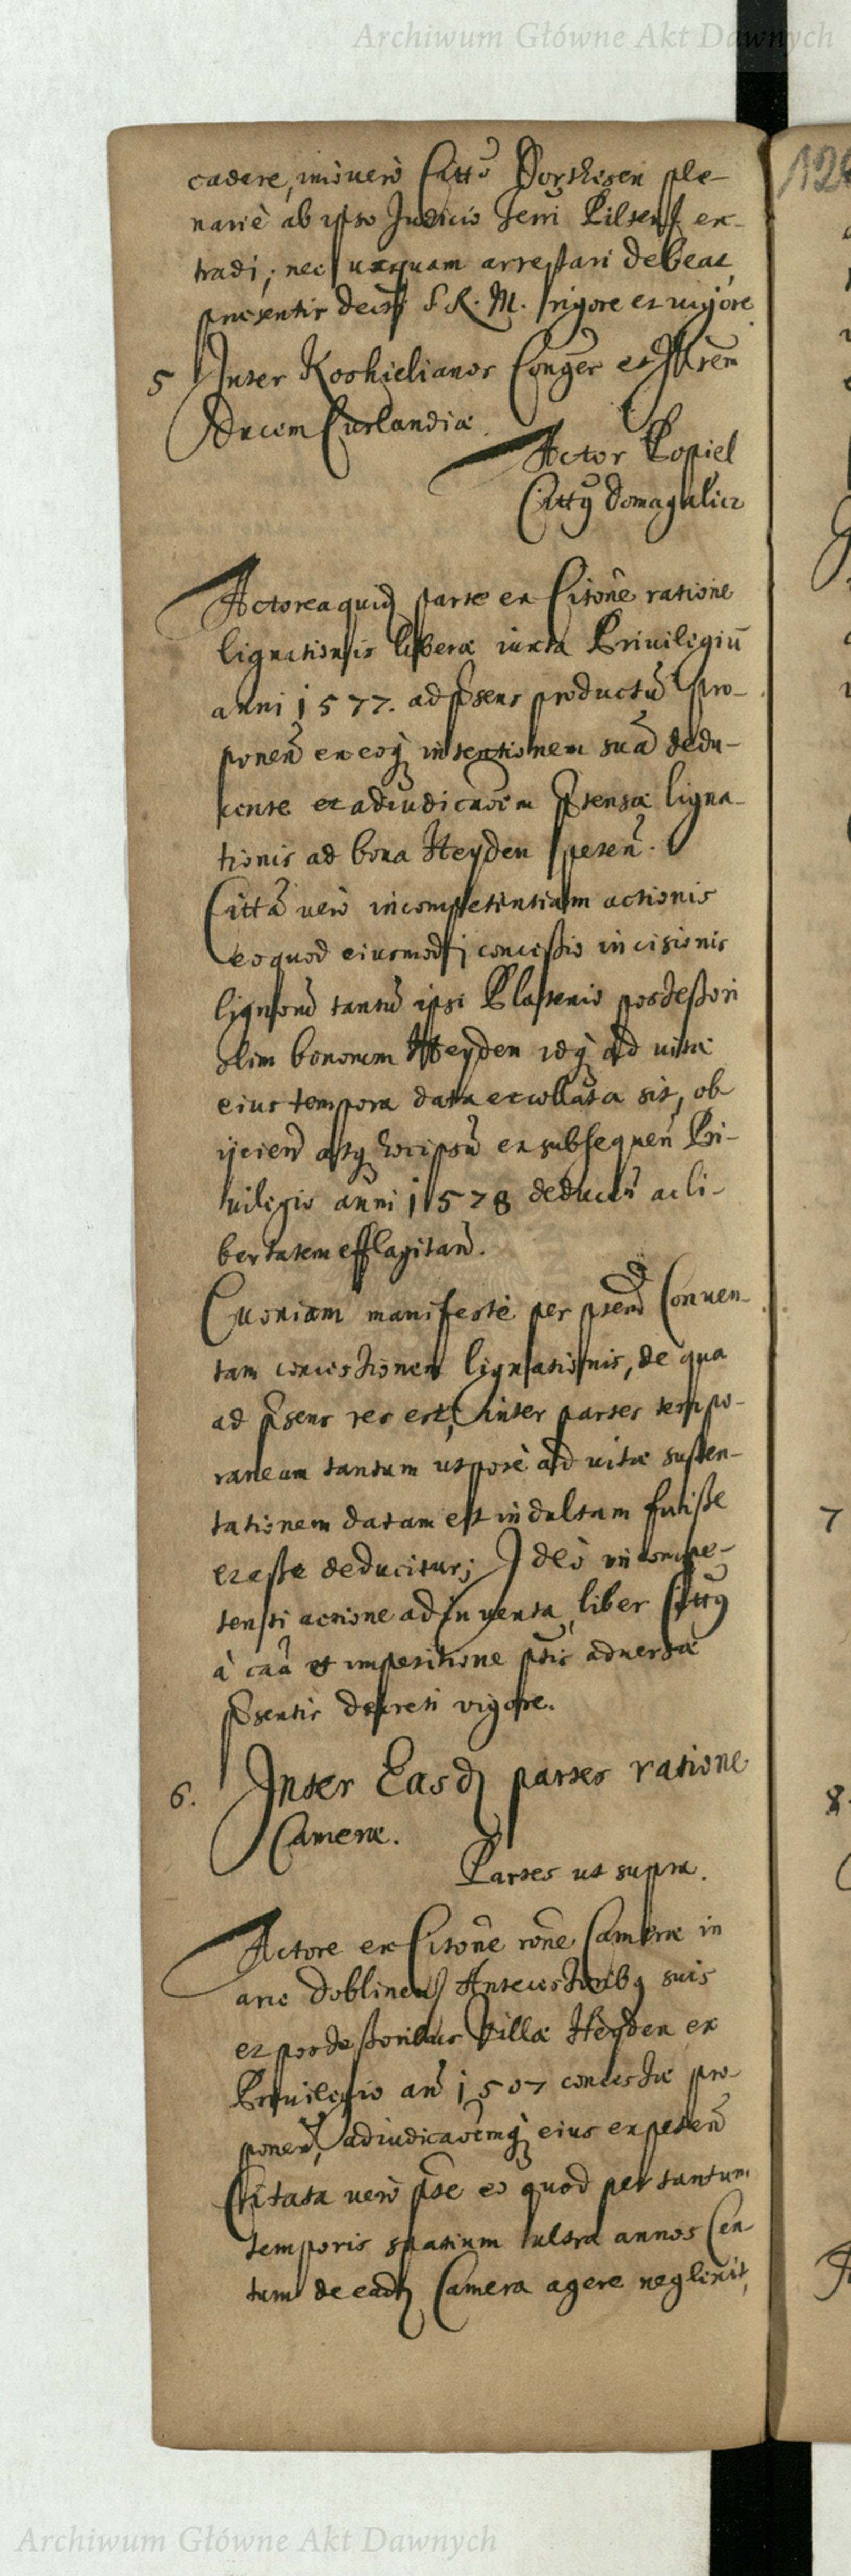 Archiwum Główne Akt Dawnych
cadere, imò verò Citto Dorthesen ple-
nariè ab ipso Judicio Terri Pilsens ex-
tradi; nec usquam arrestari debeat,
presentis decrti S. R. M. rigore et vigore.
5 Inter Koskielianos Conger et Illrem
Ducem Curlandiæ.
Actor Popiel
Cittg Domagalicz
Actorea quid parte ex Citone ratione
lignationis liberæ iuxta Privilegiũ
anni 1577. ad psens productũ pro-
ponen ex eoq intentionem suã dedu-
cente et adiudicaõem ptensæ ligna-
tionis ad bona Heyden peten.
Cittã verò incompetentiam actionis
eo quod eiusmodi concessio incisionis
lignorũ tantũ ipsi Platenio possessori
olim bonorum Heyden idq ad vitæ
eius tempora data et collata sit, ob
ijcien atq hoc ipsũ ex subsequen Pri-
uilegio anni 1578 deducen ac li-
bertatem efflagitan.
Quoniam manifestè per psem Conuen-
tam concessionem lignationis, de qua
ad psens res est, inter partes tempo-
raneam tantum utpotè ad vitæ susten-
tationem datam est indultam fuisse
et esse deducitur; Ideò incompe-
tenti actione adinventa, liber Cittg
à caã et impetitione ptis adversæ
psentis decreti vigore.
6. Inter Easd partes ratione
Cameræ.
Partes ut supra.
Actore ex Citone rõne Cameræ in
arce Doblinen Antecessoribg suis
et possessoribus Villæ Heyden ex
Privilegio an 1507 concessæ pro-
ponen, adiudicaõemq eius expeten
Citata verò pte eò quod per tantum
temporis spatium ultra annos Cen
tum de ead Camera agere neglexit,
124
7
8.
Archiwum Główne Akt Dawnych